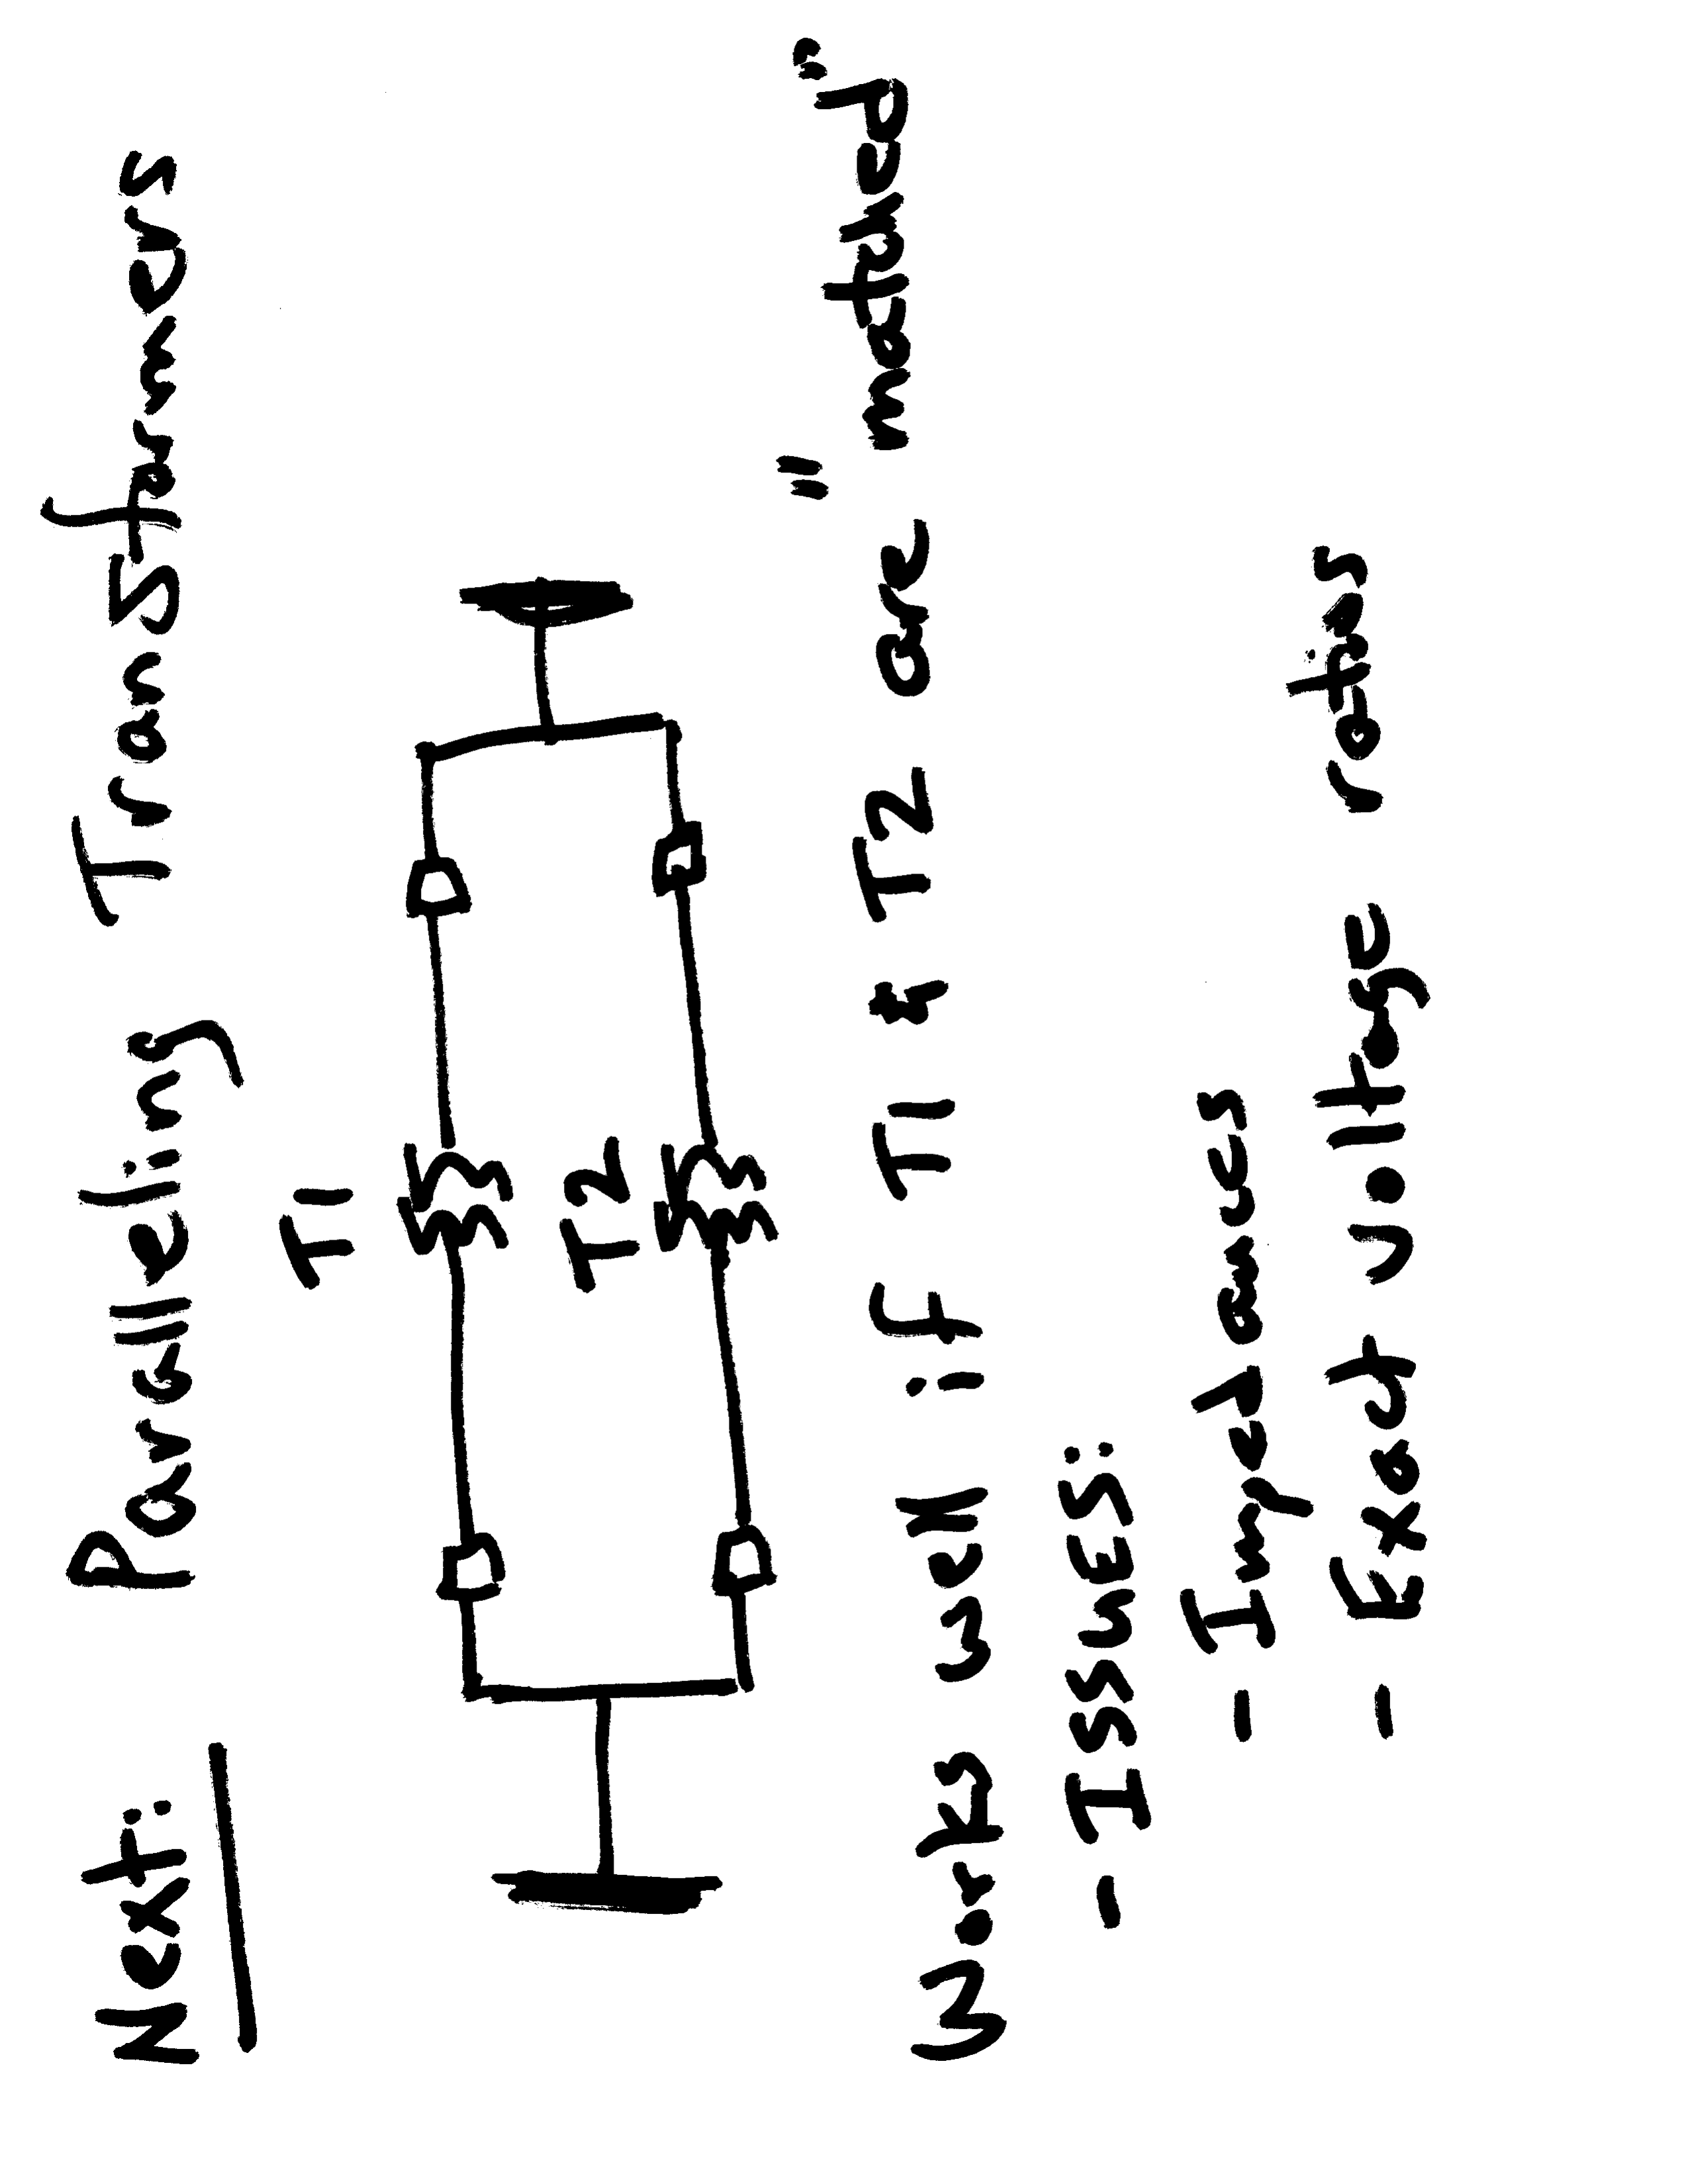 Next: Paralleling Transformers
T1
T2
Works well if T1 & T2 are "matched"
- ISSUES:
- Impedances
- Exact voltage ratios